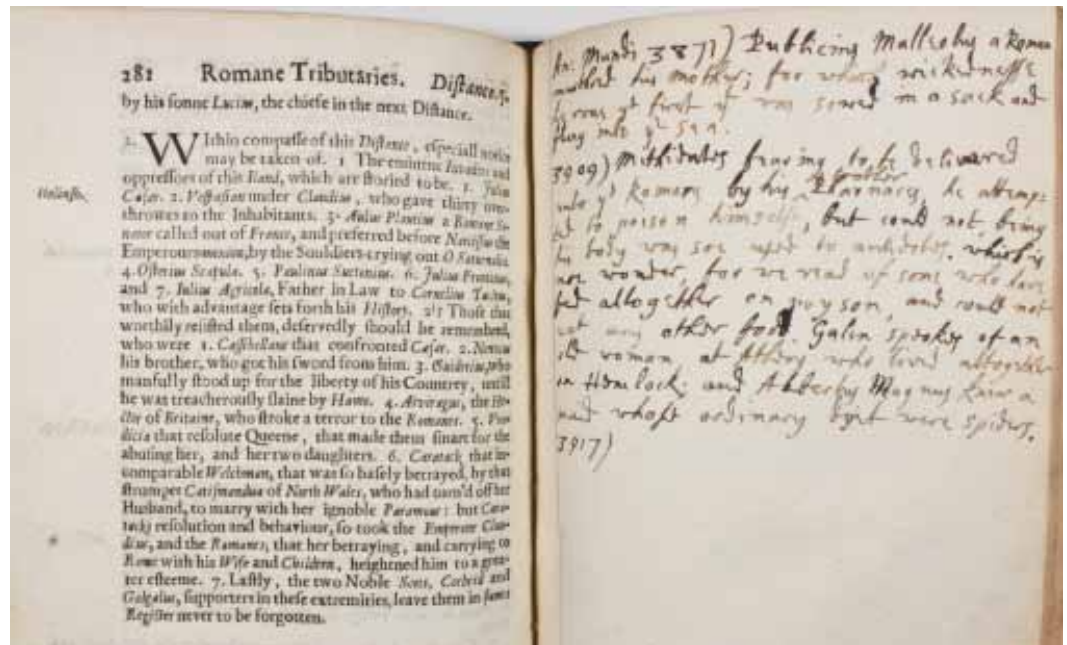 282 Romane Tributaries. Distance.5.
by his sonne Lucius, the chiefe in the next Distance.
1. Within compasse of this Distance, especiall notice
may be taken of. 1 The eminent Invaders and
oppressors of this Iland, which are storied to be. 1. Julius
Cæsar. 2. Vespasian under Claudius, who gave thirty over-
throwes to the Inhabitants. 3. Aulus Plantius a Romane Se-
nator called out of France, and preferred before Narcissus the
Emperours, by the Souldiers crying out O Saturnalia
4. Ostorius Scapula. 5. Paulinus Suetonius. 6. Julius Frontinus,
and 7. Julius Agricola, Father in Law to Cornelius Tacitus,
who with advantage sets forth his History. 2ly Those that
worthily resisted them, deservedly should be remembred,
who were 1. Cassibellane that confronted Cæsar. 2. Nennius
his brother, who got his sword from him. 3. Guiderius, who
manfully stood up for the liberty of his Countrey, untill
he was treacherously slaine by Hamo. 4. Arviragus, the He-
ctor of Britaine, who stroke a terror to the Romanes. 5. Voa-
dicia that resolute Queene, that made them smart for the
abusing her, and her two daughters. 6. Caratack that in-
comparable Welchman, that was so basely betrayed, by that
strumpet Cartismandua of North Wales, who had turn'd off her
Husband, to marry with her ignoble Paramour: but Cara-
tacks resolution and behaviour, so took the Emperor Clau-
dius, and the Romanes, that her betraying, and carrying to
Rome with his Wife and Children, heightened him to a grea-
ter esteeme. 7. Lastly, the two Noble Scots, Corbreid and
Galgalus, supporters in these extremities, leave them in fames
Register never to be forgotten.
An: Mundi 3871) Publicius Malleolus a Roman
his mother; for which wickednesse
he was yt first yt was sowed in a sack and
flung into ye sea.
3909) Mithridates fearing to be delivered
unto ye Romans by his brother Pharnaces, he attemp-
ed to poison himselfe, but could not, being
his body was soe used to antidotes. which is
noe wonder, for we read of some who have
fed altogether on poyson, and could not
eat any other food. Galen speakes of an
old woman at Athens who lived altogether
on Hemlock: and Albertus Magnus knew a
maid whose ordinary dyet were spiders.
3917)